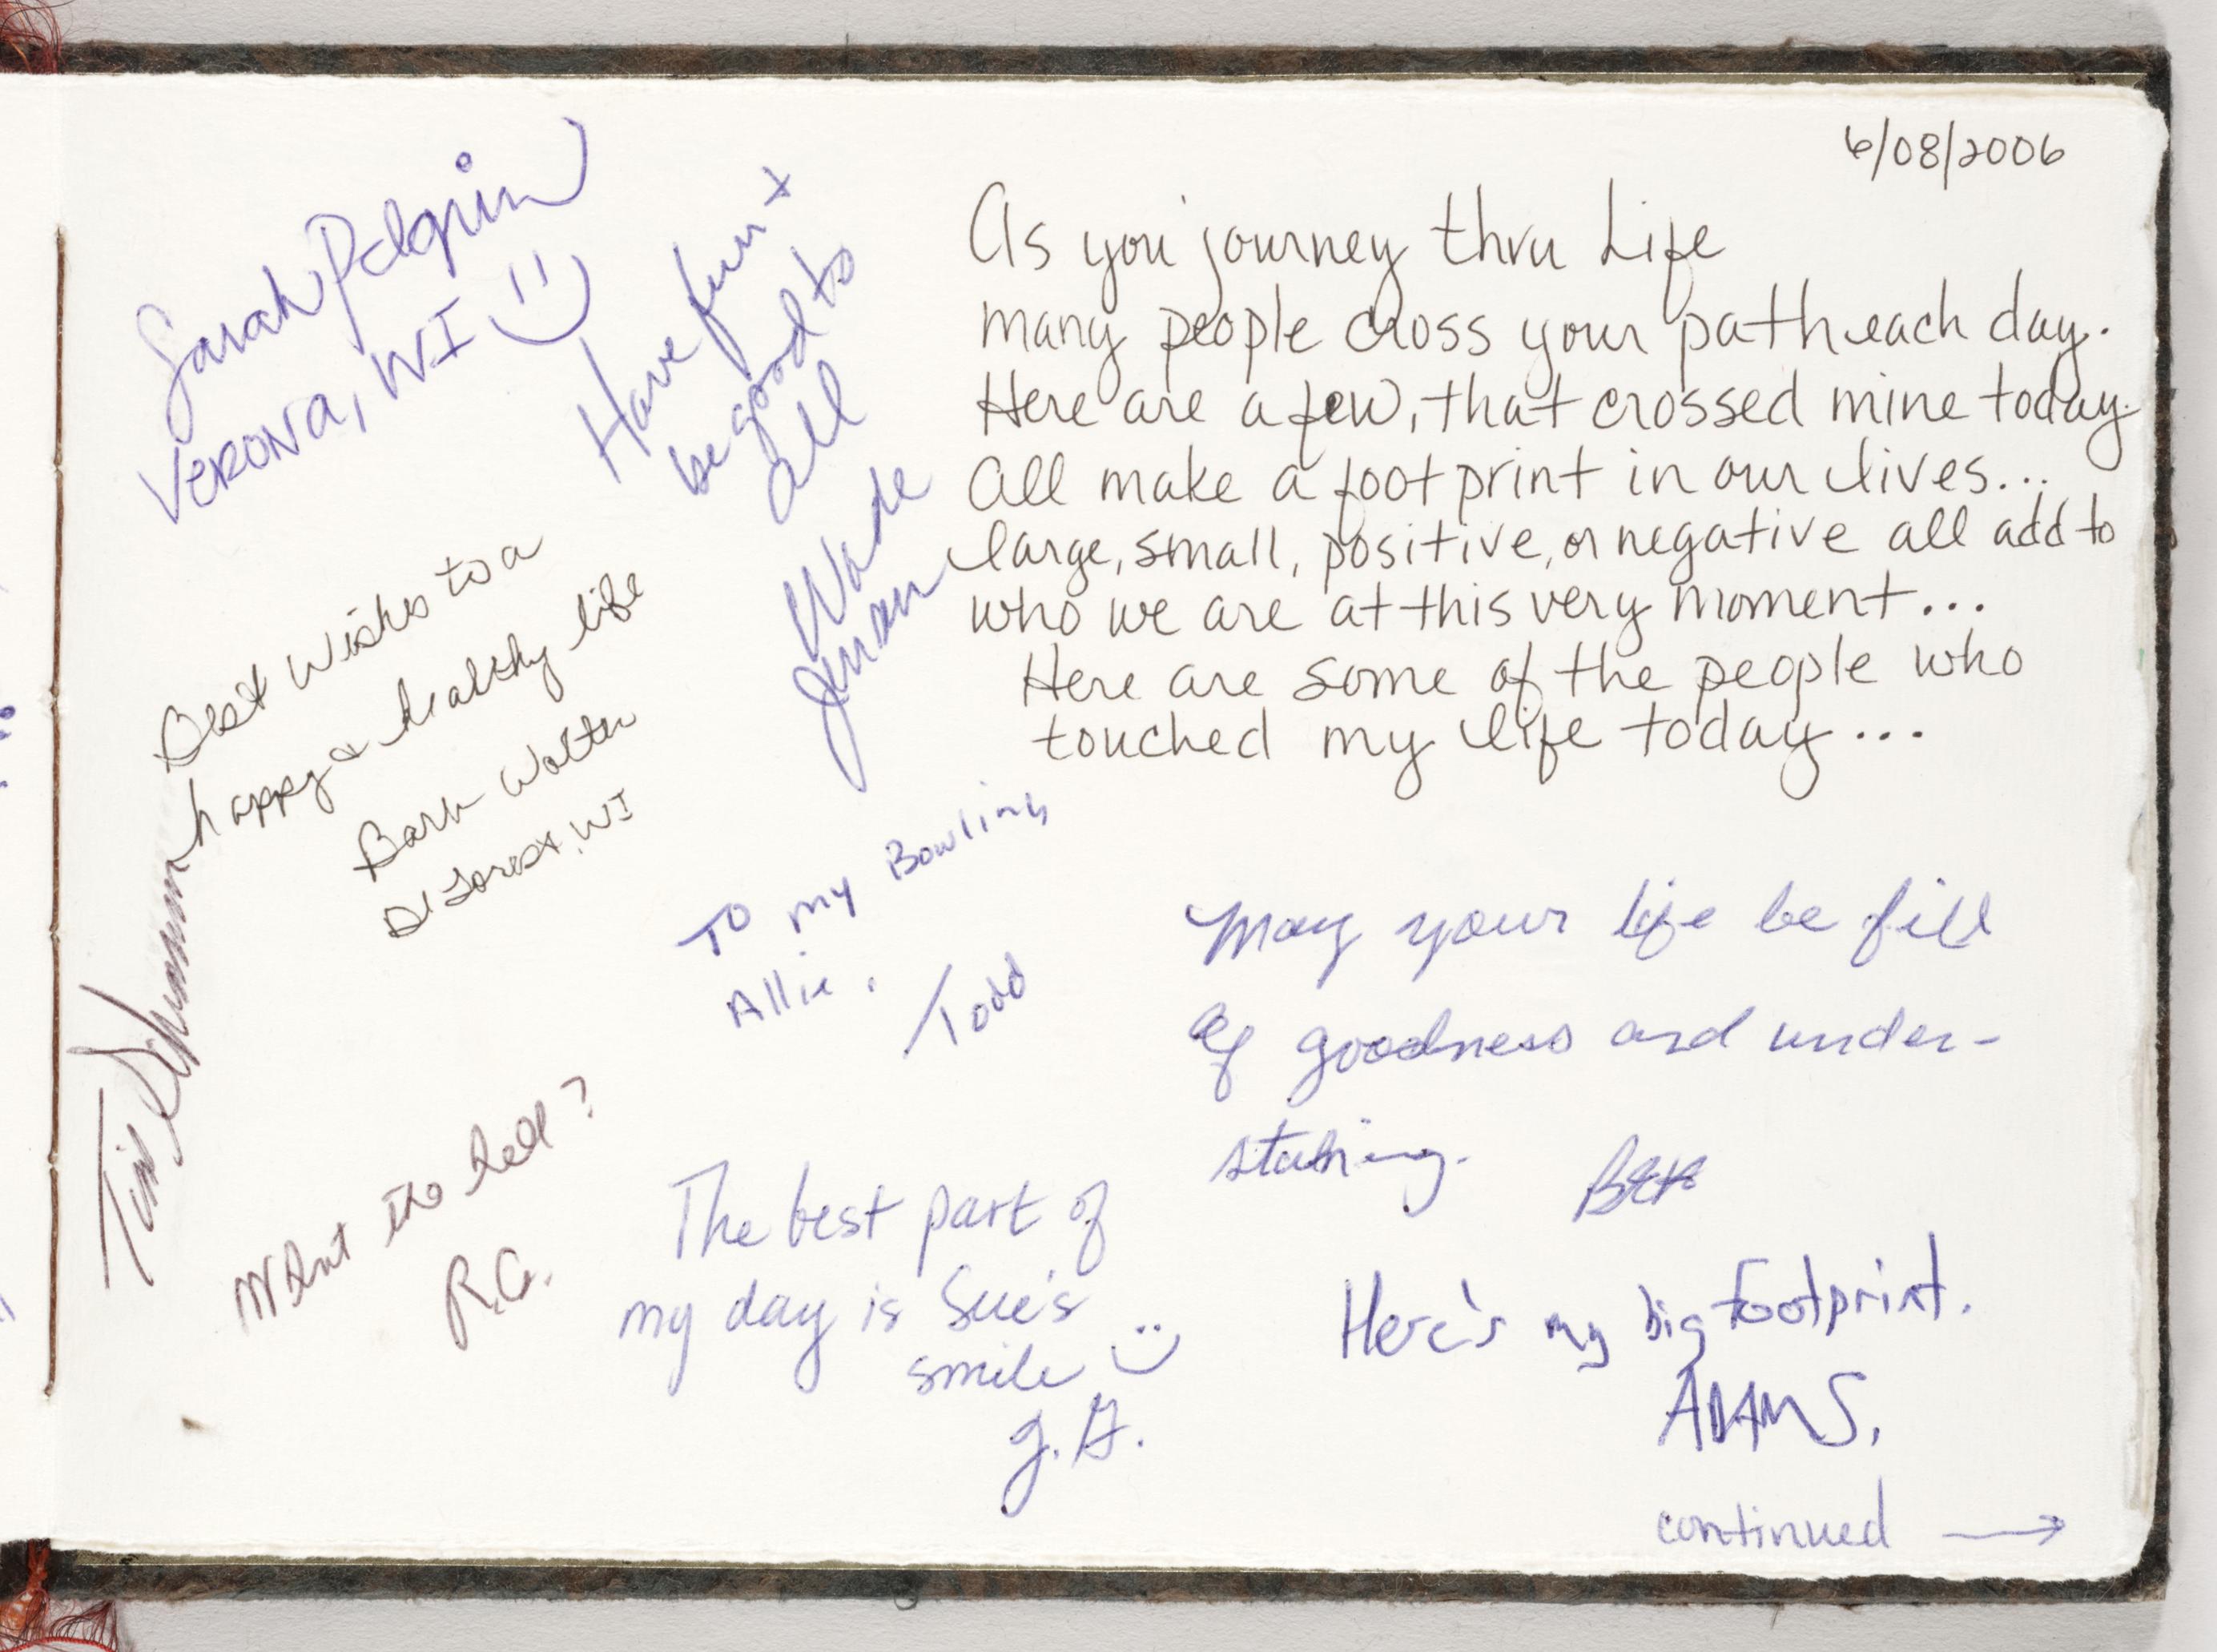 6/08/2006
As you journey thru Life
many people cross your path each day.
Here are a few, that crossed mine today.
All make a footprint in our lives...
large, small, positive, or negative all add to
who we are at this very moment...
Here are some of the people who
touched my life today...
Sarah Pelgrim
Verona, WI
Have fun +
be good to
all
Wade
Best Wishes to a
happy & healthy life
Barb Wolter
DeForest, WI
Tim
To my Bowling
Allie,
/Todd
What the hell?
R.G.
The best part of
my day is Sue's
smile
J.G.
May your life be fill
of goodness and under-
standing.
Here's my big footprint.
ADAM S.
continued →